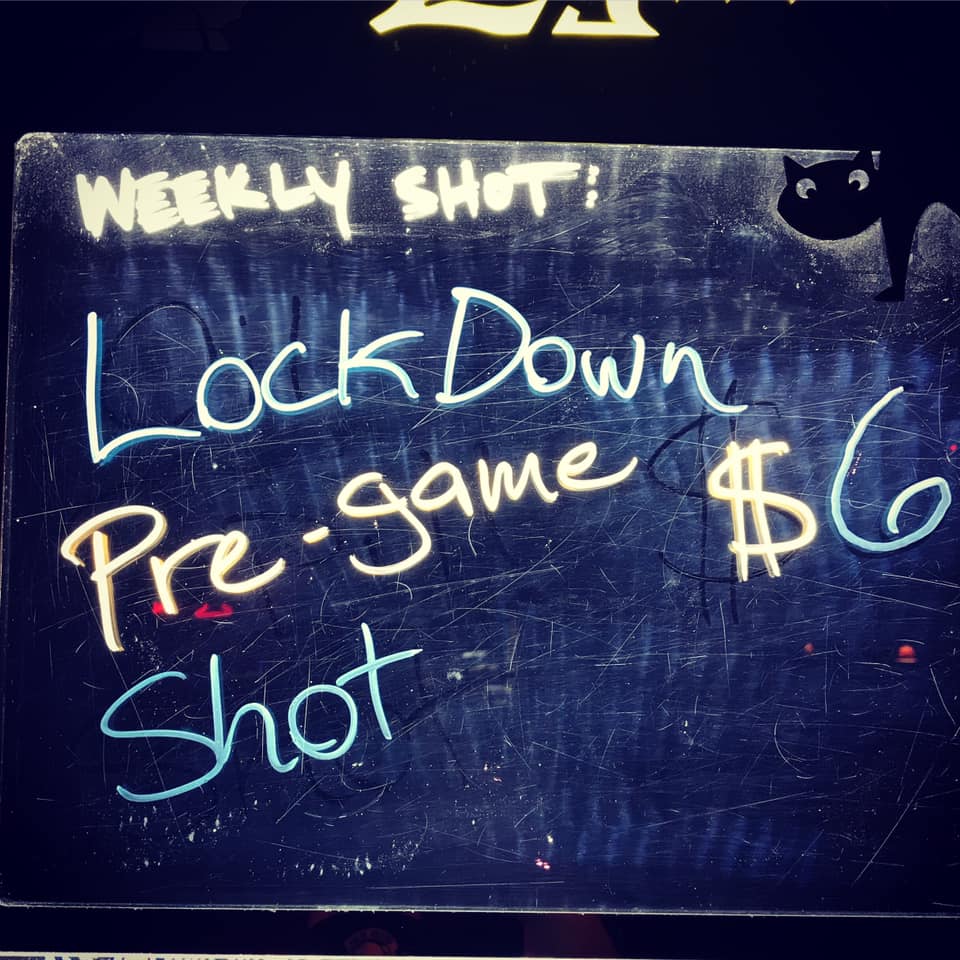 WEEKLY SHOT:
LockDown
Pre-game $6
Shot